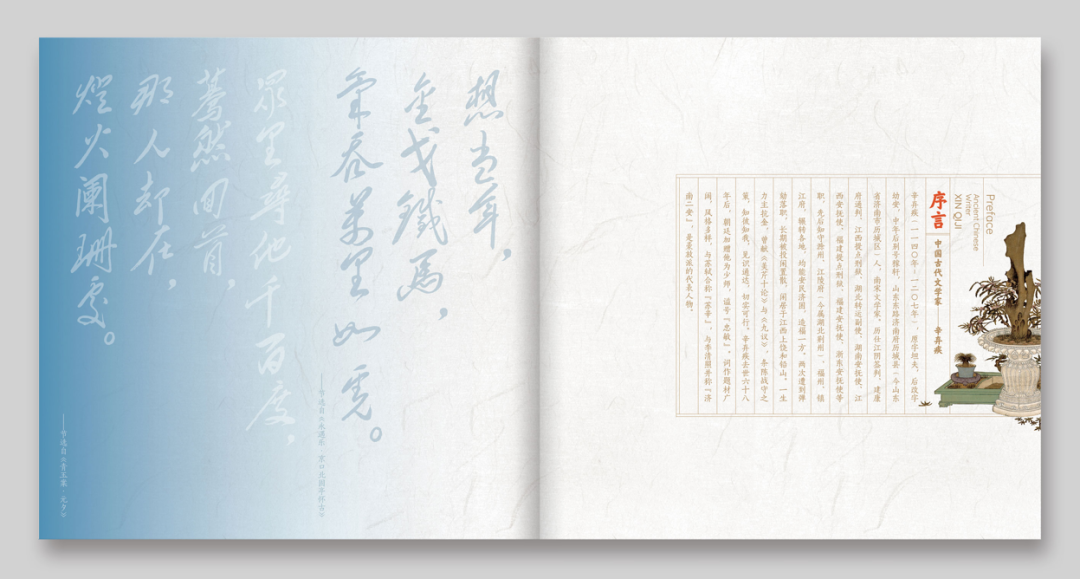 想当年，
金戈鐵馬，
氣吞萬里如虎。
——节选自《永遇乐·京口北固亭怀古》
眾里尋他千百度，
驀然回首，
那人却在，
燈火阑珊處。
——节选自《青玉案·元夕》
Preface
Ancient Chinese
Writer
XIN QIJI
序言
中国古代文学家——辛弃疾
辛弃疾（一一四〇年－一二〇七年），原字坦夫，后改字
幼安，中年后别号稼轩，山东东路济南府历城县（今山东
省济南市历城区）人。南宋文学家。历仕江阴签判、建康
府通判、江西提点刑狱、湖北转运副使、湖南安抚使、江
西安抚使、福建提点刑狱、福建安抚使、浙东安抚使等
职，先后知守滁州、江陵府（今属湖北荆州）、福州、镇
江府，辗转各地，均能安民济困，造福一方。两次遭到弹
劾落职，长期被投闲置散，闲居于江西上饶和铅山。一生
力主抗金，曾献《美芹十论》与《九议》，条陈战守之
策，知彼知我，见识通达，切实可行。辛弃疾去世六十八
年后，朝廷加赠他为少师，谥号『忠敏』。词作题材广
阔，风格多样，与苏轼合称『苏辛』，与李清照并称『济
南二安』，是豪放派的代表人物。